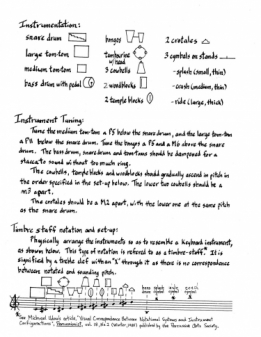 Instrumentation:
snare drum
large tom-tom
medium tom-tom
bass drum with pedal
bongos
tambourine w/head
3 cowbells
2 woodblocks
2 temple blocks
2 crotales
3 cymbals on stands
-splash (small, thin)
-crash (medium, thin)
-ride (large, thick)
Instrument Tuning:
Tune the medium tom-tom a P5 below the snare drum, and the large tom-tom
a P8 below the snare drum. Tune the bongos a P5 and M6 above the snare
drum. The bass drum, snare drum and tom-toms should be dampened for a
staccato sound without too much ring.
The cowbells, temple blocks and woodblocks should gradually ascend in pitch in
the order specified in the set-up below. The lower two cowbells should be a
m3 apart.
The crotales should be a M2 apart, with the lower one at the same pitch
as the snare drum.
Timbre staff notation and set-up:
Physically arrange the instruments so as to resemble a keyboard instrument,
as shown below. This type of notation is referred to as a timbre-staff.* It is
signified by a treble clef with an "X" through it as there is no correspondence
between notated and sounding pitch.
*See Michael Udow's article, "Visual Correspondence Between Notational Systems and Instrument
Configurations", Percussionist, published by the Percussive Arts Society.